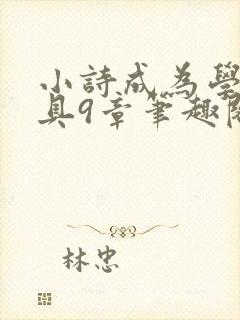 小詩成為學
具9章筆趣閱
林忠